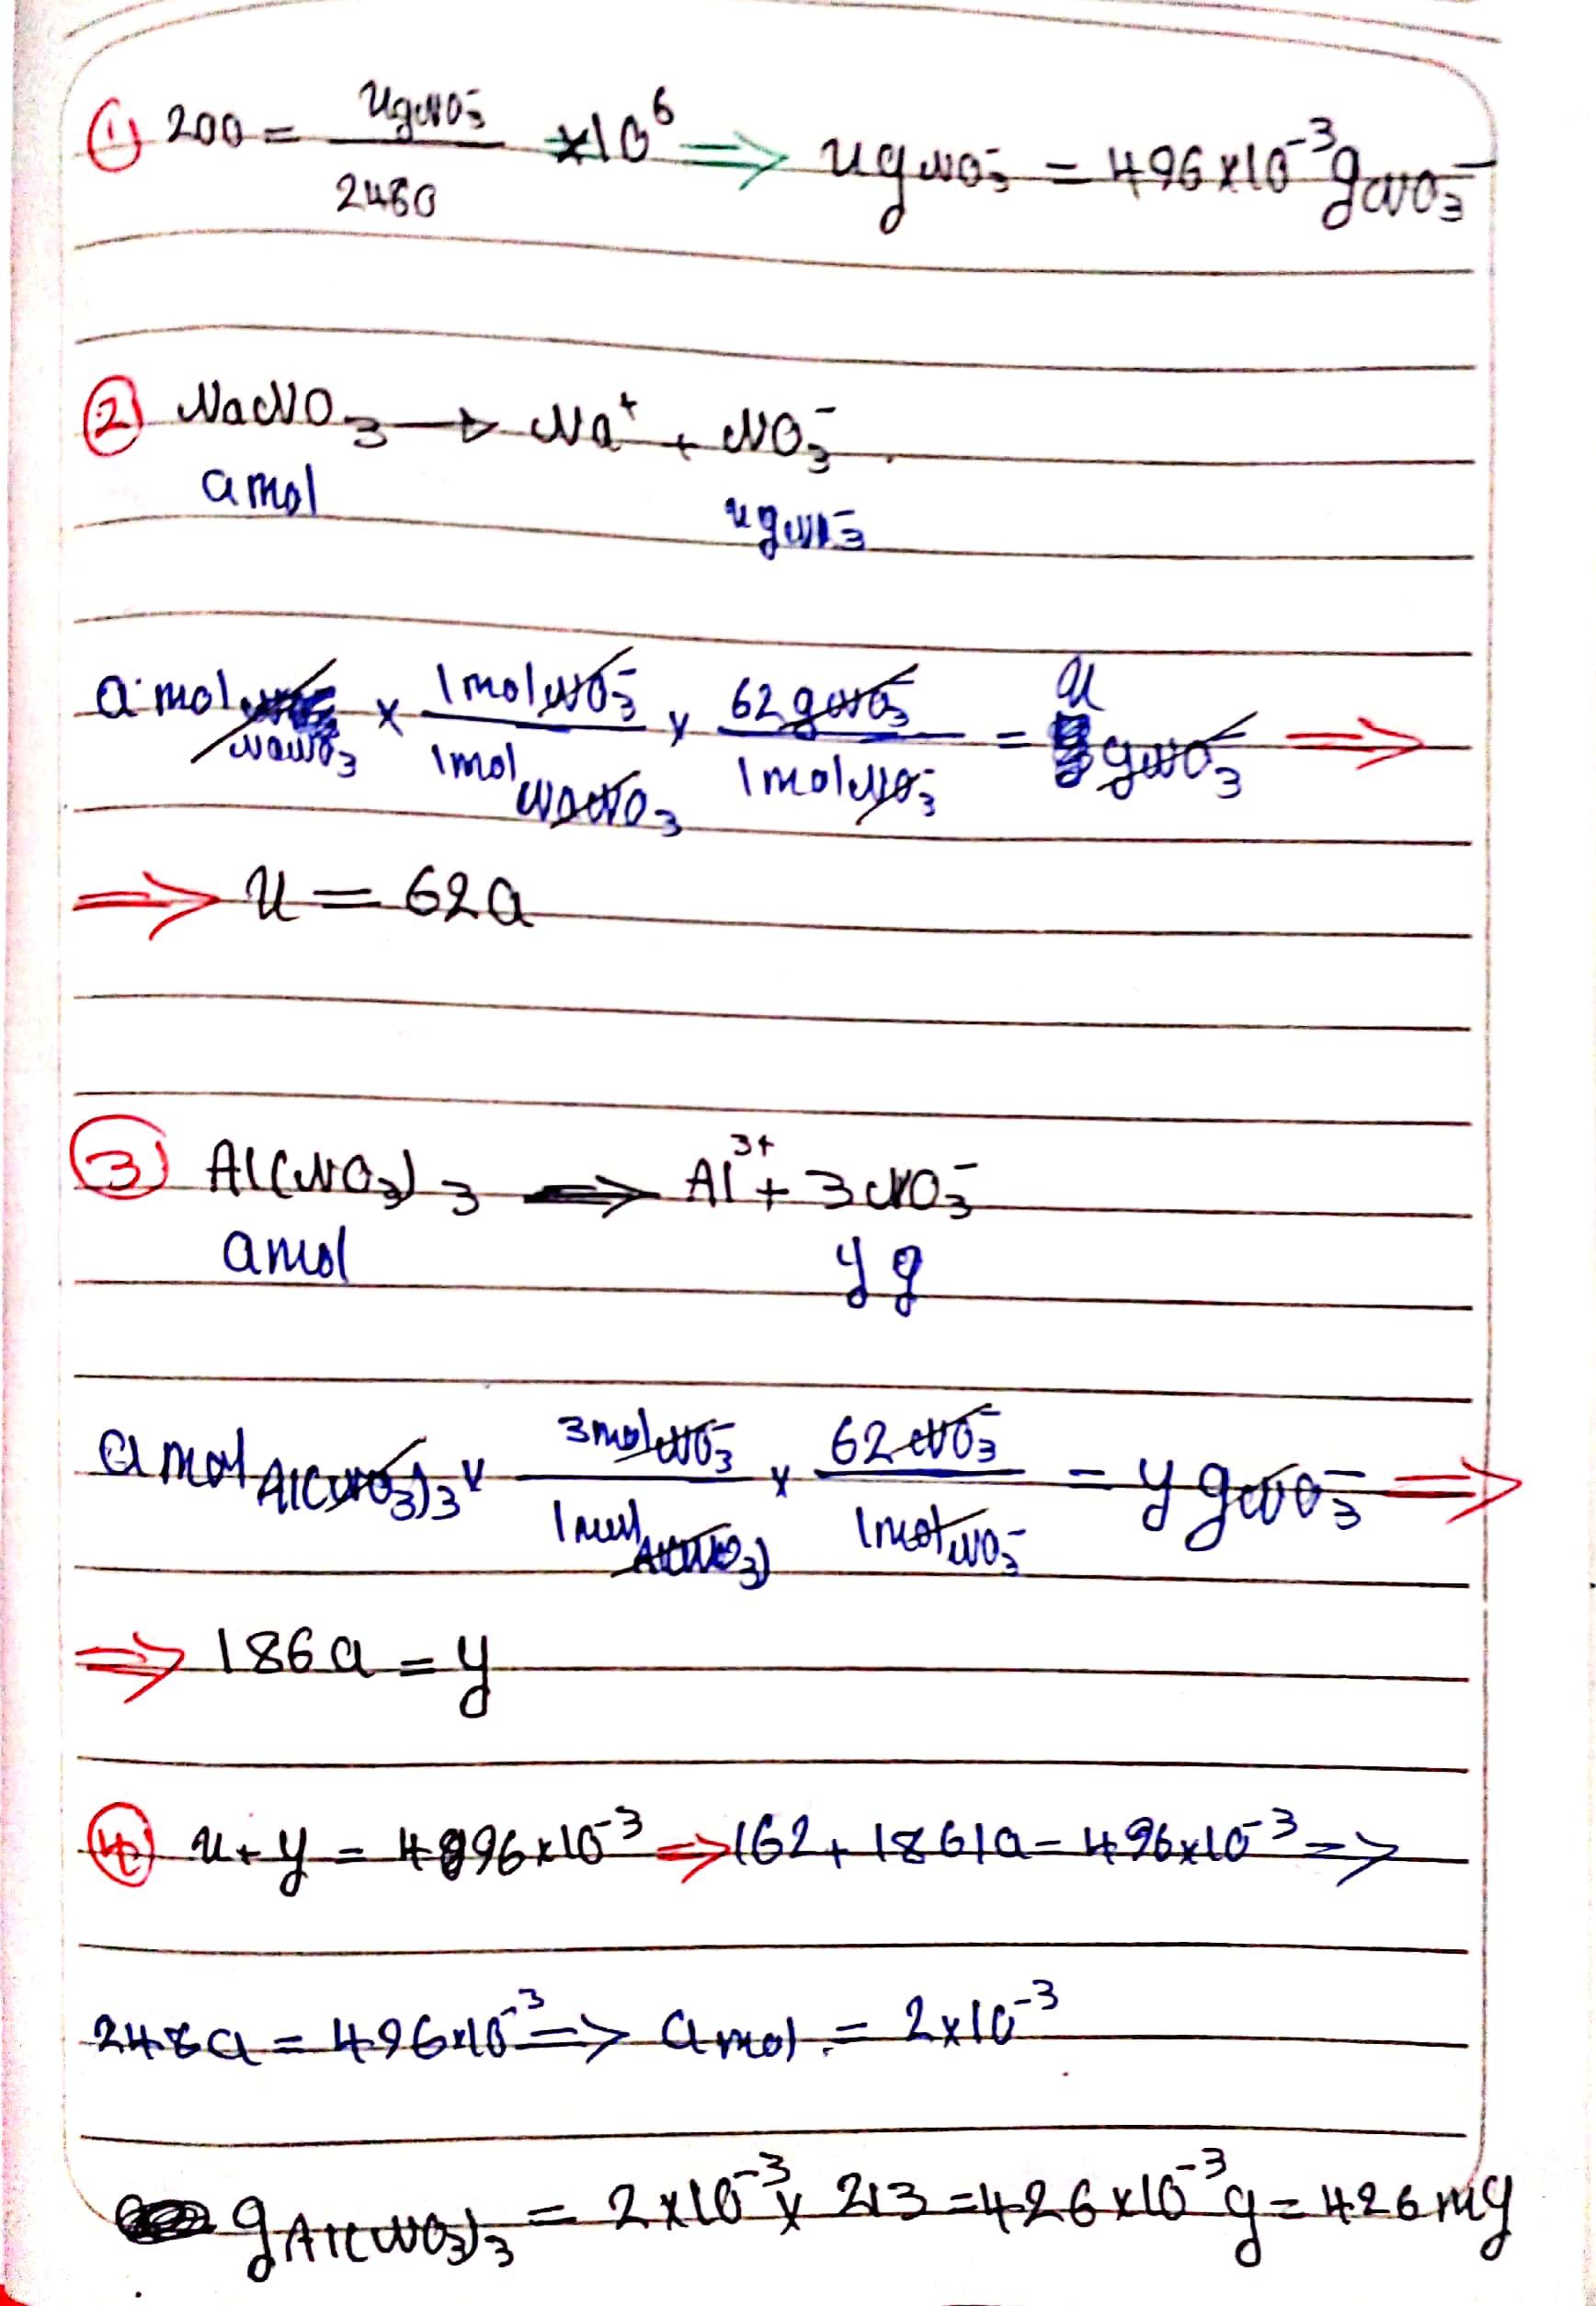 ① 200 = ugNO₃⁻ / 2480 ×10⁶ ⇒ ugNO₃⁻ = 496×10⁻³gNO₃⁻
② NaNO₃ → Na⁺ + NO₃⁻
a mol ugNO₃⁻
a mol NaNO₃ × 1molNO₃⁻ / 1mol NaNO₃ × 62gNO₃⁻ / 1molNO₃⁻ = u gNO₃⁻ ⇒
⇒ u = 62a
③ Al(NO₃)₃ → Al³⁺ + 3NO₃⁻
a mol y g
a mol Al(NO₃)₃ × 3molNO₃⁻ / 1mol Al(NO₃) × 62NO₃⁻ / 1molNO₃⁻ = y gNO₃⁻ ⇒
⇒ 186a = y
④ u + y = 496×10⁻³ ⇒ (62 + 186)a = 496×10⁻³ ⇒
248a = 496×10⁻³ ⇒ a mol = 2×10⁻³
gAl(NO₃)₃ = 2×10⁻³ × 213 = 426×10⁻³g = 426mg